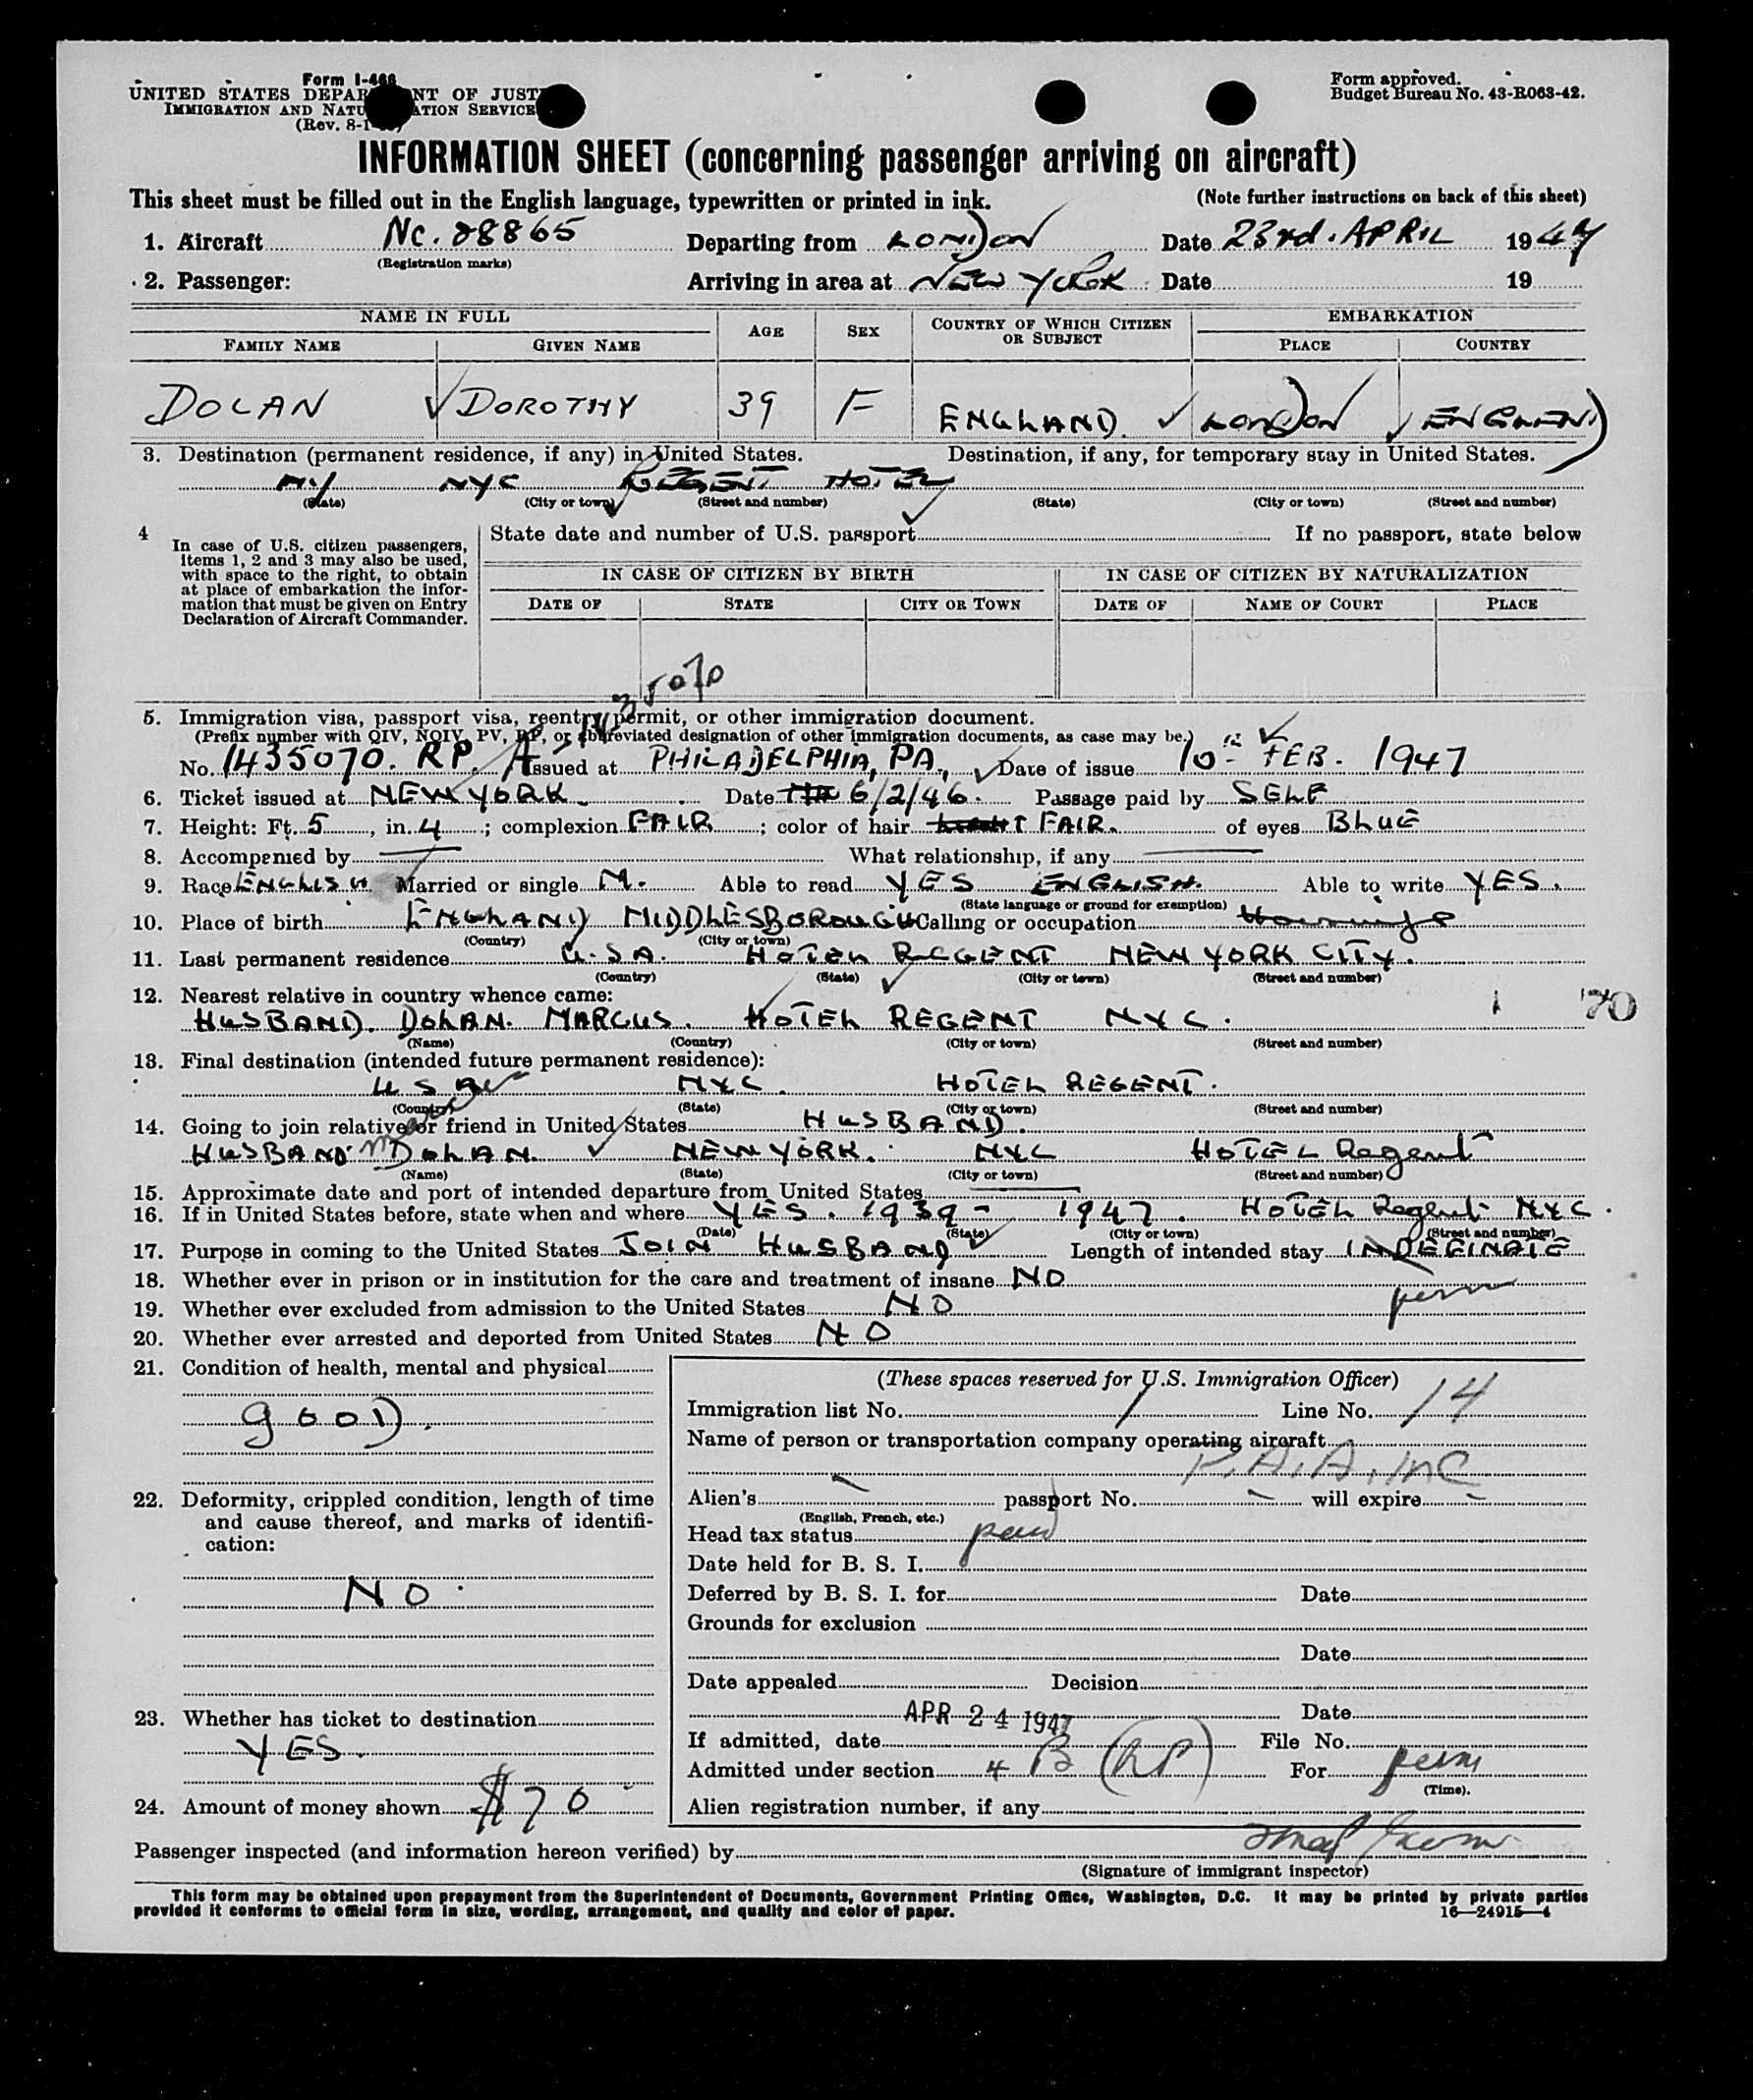 Form I-466
UNITED STATES DEPARTMENT OF JUST
IMMIGRATION AND NATU ATION SERVICE
(Rev. 8-1
Form approved.
Budget Bureau No. 43-R063-42.
INFORMATION SHEET (concerning passenger arriving on aircraft)
This sheet must be filled out in the English language, typewritten or printed in ink. (Note further instructions on back of this sheet)
1. Aircraft NC. 88865 Departing from LONDON Date 23rd. APRIL 1947
(Registration marks)
2. Passenger: Arriving in area at NEW YORK Date 19
NAME IN FULL AGE SEX COUNTRY OF WHICH CITIZEN OR SUBJECT EMBARKATION
FAMILY NAME GIVEN NAME PLACE COUNTRY
DOLAN DOROTHY 39 F ENGLAND. LONDON ENGLAND
3. Destination (permanent residence, if any) in United States. Destination, if any, for temporary stay in United States.
NY NYC REGENT HOTEL
(State) (City or town) (Street and number) (State) (City or town) (Street and number)
4 In case of U.S. citizen passengers, items 1, 2 and 3 may also be used, with space to the right, to obtain at place of embarkation the information that must be given on Entry Declaration of Aircraft Commander.
State date and number of U.S. passport If no passport, state below
IN CASE OF CITIZEN BY BIRTH IN CASE OF CITIZEN BY NATURALIZATION
DATE OF STATE CITY OR TOWN DATE OF NAME OF COURT PLACE
5. Immigration visa, passport visa, reentry permit, or other immigration document.
(Prefix number with QIV, NQIV, PV, RP, or abbreviated designation of other immigration documents, as case may be.)
No. 1435070. RP. Issued at PHILADELPHIA, PA., Date of issue 10th FEB. 1947
6. Ticket issued at NEW YORK. Date 6/2/46. Passage paid by SELF
7. Height: Ft. 5, in. 4; complexion FAIR; color of hair FAIR. of eyes BLUE
8. Accompanied by What relationship, if any
9. Race ENGLISH Married or single M. Able to read YES ENGLISH. Able to write YES.
(State language or ground for exemption)
10. Place of birth ENGLAND MIDDLESBOROUGH Calling or occupation
(Country) (City or town)
11. Last permanent residence U.S.A. HOTEL REGENT NEW YORK CITY.
(Country) (State) (City or town) (Street and number)
12. Nearest relative in country whence came:
HUSBAND. DOLAN. MARCUS. HOTEL REGENT NYC.
(Name) (Country) (City or town) (Street and number)
70
13. Final destination (intended future permanent residence):
USA NYC. HOTEL REGENT.
(Country) (State) (City or town) (Street and number)
14. Going to join relative or friend in United States HUSBAND.
HUSBAND DOLAN. NEW YORK. NYC HOTEL Regent
(Name) (State) (City or town) (Street and number)
15. Approximate date and port of intended departure from United States
16. If in United States before, state when and where YES. 1939 - 1947. HOTEL Regent NYC.
(Date) (State) (City or town) (Street and number)
17. Purpose in coming to the United States JOIN HUSBAND Length of intended stay INDEFINATE
perm
18. Whether ever in prison or in institution for the care and treatment of insane NO
19. Whether ever excluded from admission to the United States NO
20. Whether ever arrested and deported from United States NO
21. Condition of health, mental and physical
GOOD.
22. Deformity, crippled condition, length of time and cause thereof, and marks of identification:
NO.
23. Whether has ticket to destination
YES.
24. Amount of money shown $70
(These spaces reserved for U.S. Immigration Officer)
Immigration list No. 1 Line No. 14
Name of person or transportation company operating aircraft
P.A.A. INC
Alien's passport No. will expire
(English, French, etc.)
Head tax status paid
Date held for B. S. I.
Deferred by B. S. I. for Date
Grounds for exclusion
Date
Date appealed Decision
Date
APR 24 1947
If admitted, date File No.
Admitted under section 4 B (RP) For perm
(Time).
Alien registration number, if any
Passenger inspected (and information hereon verified) by
(Signature of immigrant inspector)
This form may be obtained upon prepayment from the Superintendent of Documents, Government Printing Office, Washington, D.C. It may be printed by private parties
provided it conforms to official form in size, wording, arrangement, and quality and color of paper. 16—24915-4